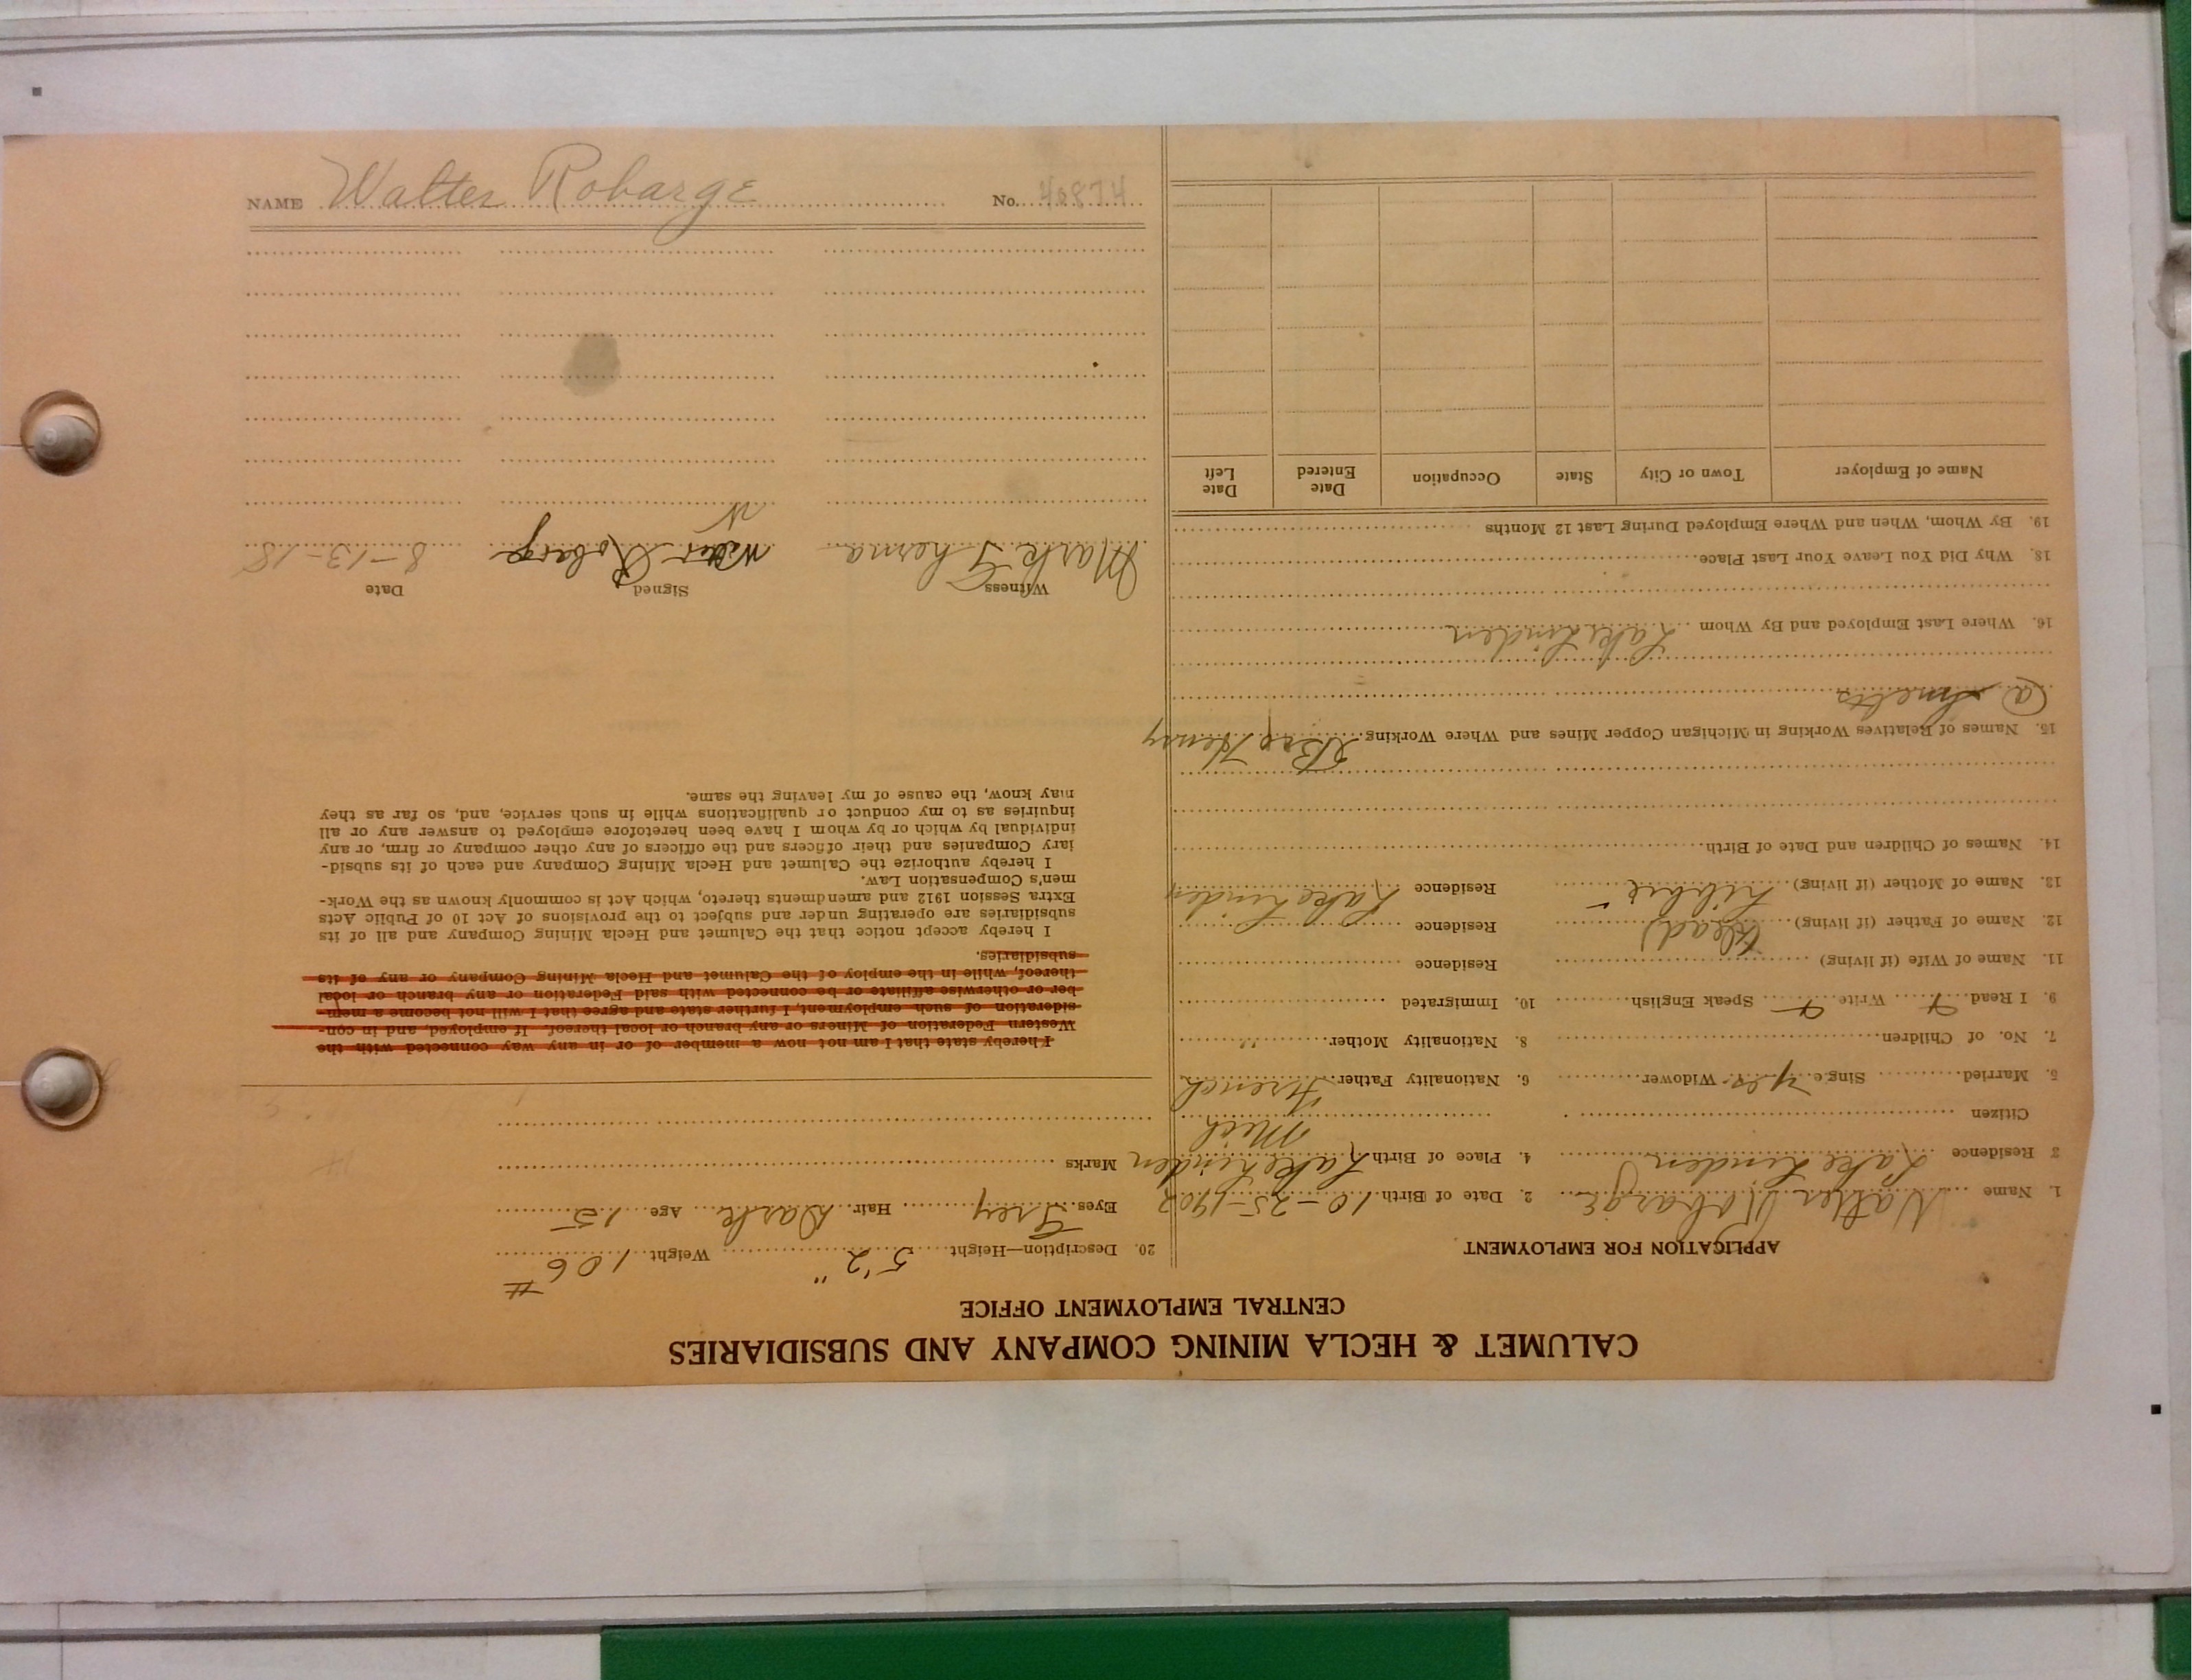 NAME Walter Robarge No. 40874
CALUMET & HECLA MINING COMPANY AND SUBSIDIARIES
CENTRAL EMPLOYMENT OFFICE
APPLICATION FOR EMPLOYMENT
1. Name Walter Robarge 2. Date of Birth 10-25-1902
3 Residence Lake Linden 4. Place of Birth Lake Linden
Mich
Citizen
5. Married Single yes Widower 6. Nationality Father French
7. No. of Children 8. Nationality Mother "
9. I Read Write Speak English 10. Immigrated
11. Name of Wife (if living) Residence
12. Name of Father (if living) (dead) Residence
13. Name of Mother (if living) Residence Lake Linden
14. Names of Children and Date of Birth
15. Names of Relatives Working in Michigan Copper Mines and Where Working Bro Henry
@ Smelts
16. Where Last Employed and By Whom Lake Linden
18. Why Did You Leave Your Last Place
19. By Whom, When and Where Employed During Last 12 Months
Name of Employer Town or City State Occupation Date Entered Date Left
20. Description—Height 5'2" Weight 106 #
Eyes Grey Hair Dark Age 15
Marks
I hereby state that I am not now a member of or in any way connected with the
Western Federation of Miners or any branch or local thereof. If employed, and in con-
sideration of such employment, I further state and agree that I will not become a mem-
ber or otherwise affiliate or be connected with said Federation or any branch or local
thereof, while in the employ of the Calumet and Hecla Mining Company or any of its
subsidiaries.
I hereby accept notice that the Calumet and Hecla Mining Company and all of its
subsidiaries are operating under and subject to the provisions of Act 10 of Public Acts
Extra Session 1912 and amendments thereto, which Act is commonly known as the Work-
men's Compensation Law.
I hereby authorize the Calumet and Hecla Mining Company and each of its subsid-
iary Companies and their officers and the officers of any other company or firm, or any
individual by which or by whom I have been heretofore employed to answer any or all
inquiries as to my conduct or qualifications while in such service, and, so far as they
may know, the cause of my leaving the same.
Witness Signed Date
Mark Walter Robarge 8-13-18